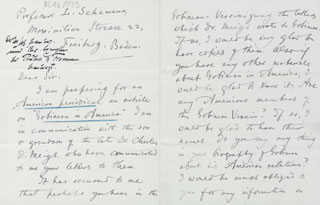 Professor L. Schemann
Maximilian Strasse 22,
Freiburg, Baden.
Dear Sir.
I am preparing for an
American periodical an article
on "Gobineau in America". I am
in communication with the son
& grandson of the late Dr. Charles
D. Meigs, who have communicated
to me your letters to them.
It has occurred to me
that perhaps you have in the
Gobineau-Vereinigung the letters
which Dr. Meigs wrote to Gobineau
If so, I would be very glad to
have copies of them. Also if
you have any other materials
about Gobineau in America, I
would be glad to know it. Are
any Americans members of
the Gobineau Verein? If so, I
would be glad to have their
names. Do you say any thing
in your biography of Gobineau
about his American relations?
I would be much obliged to
you for any information on